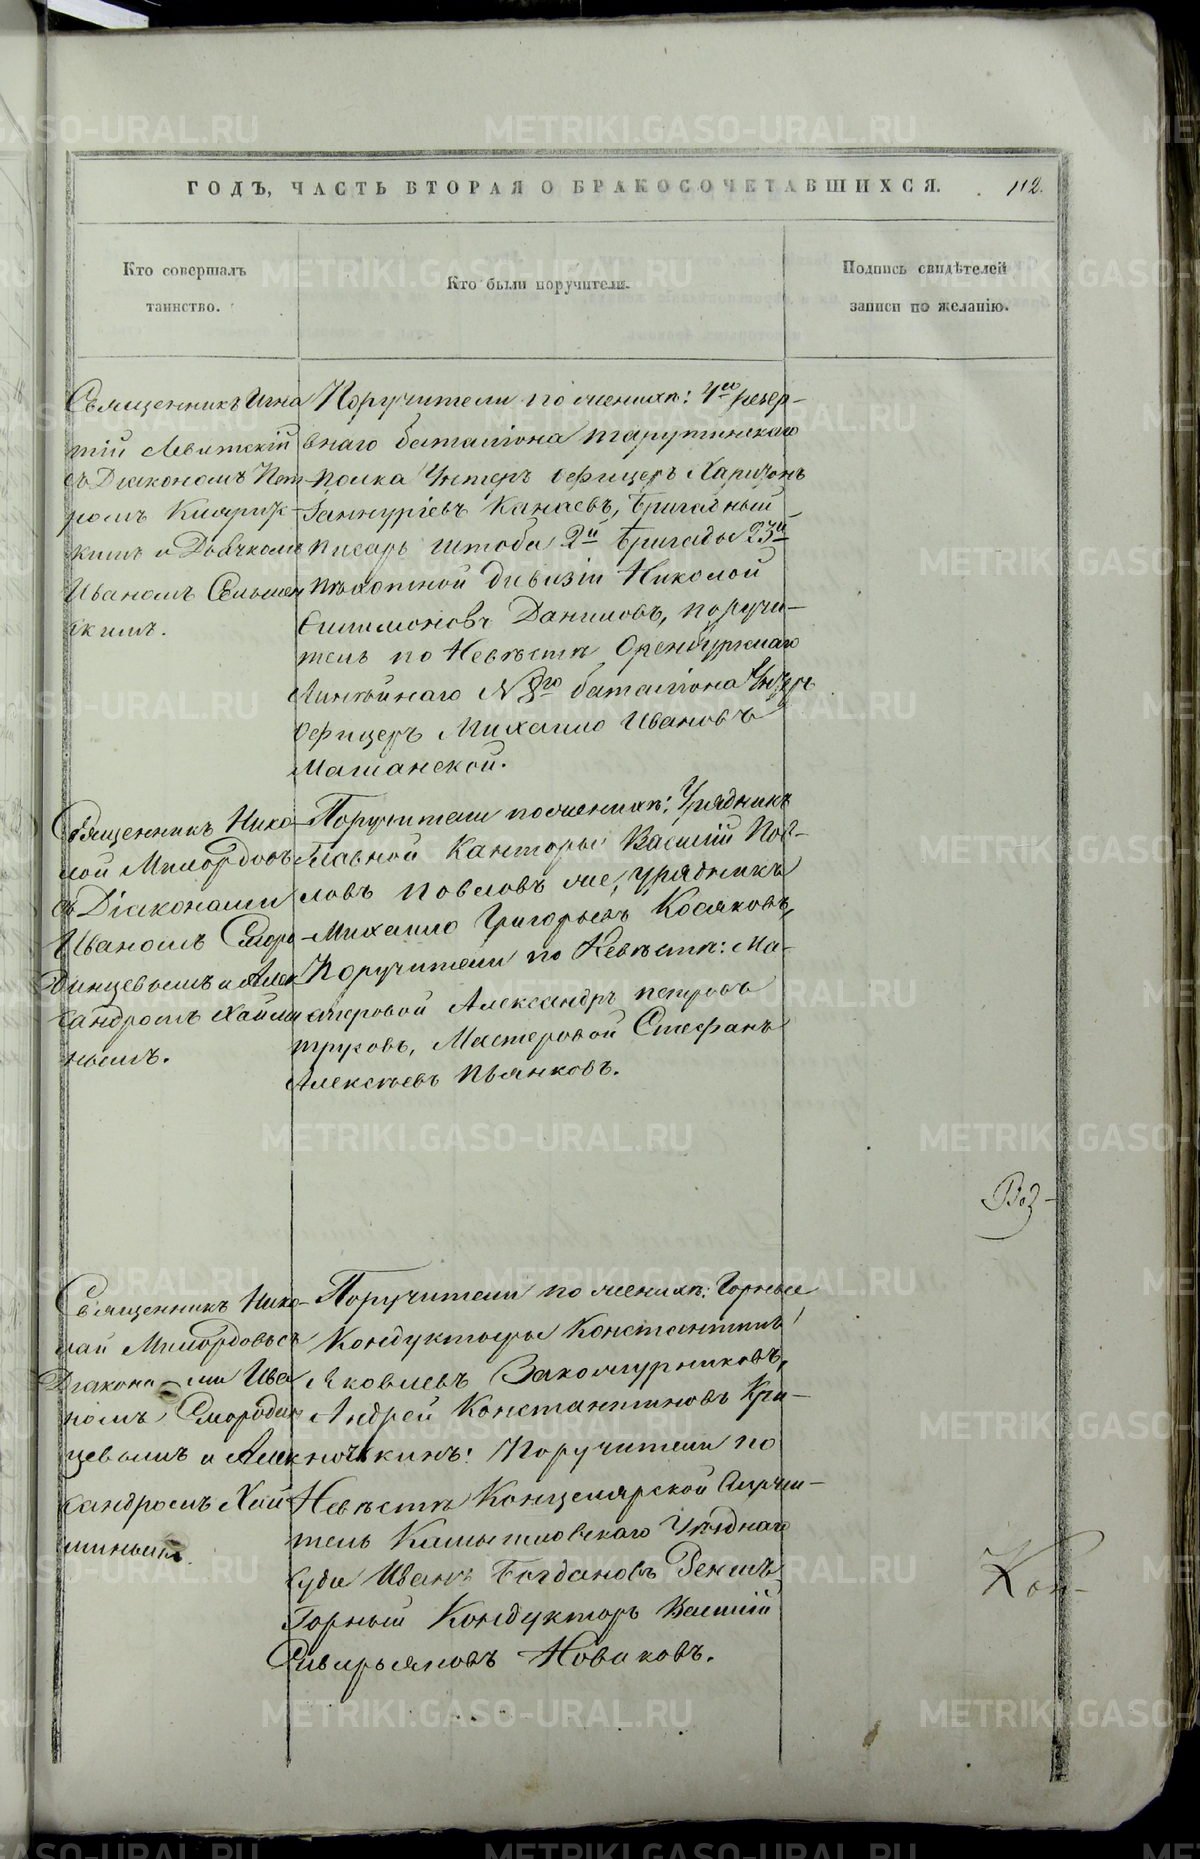 ГОДЪ, ЧАСТЬ ВТОРАЯ О БРАКОСОЧЕТАВШИХСЯ. 112.
Кто совершалъ
таинство.
Кто были поручители.
Подпись свидѣтелей
записи по желанію.
Священникъ Игна
тій Левитскій
съ Діакономъ Пет
ромъ
кимъ и Дьячкомъ
Иваномъ
скимъ.
Поручители по женихѣ: 4го резер-
внаго баталіона тарутинскаго
полка Унтеръ офицеръ Харитонъ
Канаевъ, Бригадный
писарь штаба 2й Бригады 23й
пѣхотной дивизіи Николай
Филимоновъ Даниловъ, поручи-
тель по Невѣстѣ Оренбургскаго
Линѣйнаго №8го баталіона Унтеръ
офицеръ Михаило Ивановъ
Матанской.
Священникъ Нико-
лай Милордовъ
съ Діаконами
Иваномъ Сморо-
динцевымъ и Алек
сандромъ Хайми
нымъ.
Поручители по женихѣ: Урядникъ
Главной Канторы Василій Пав-
ловъ Павловъ же, урядникъ
Михаило Григорьевъ Косяковъ,
Поручители по Невѣстѣ: Ма-
стеровой Александръ петровъ
труковъ, Мастеровой Стефанъ
Алексѣевъ Пьянковъ.
Воз-
Священникъ Нико-
лай Милордовъ съ
Діаконами Ива
номъ Смородин
цевымъ и Алек
сандромъ Хай
минымъ.
Поручители по женихѣ: Горные
Кондукторы Константинъ
Яковлевъ Закожурниковъ,
Андрей Константиновъ Кри-
ночкинъ: Поручители по
Невѣстѣ Канцелярской Служи-
тель Камышловскаго Уѣзднаго
суда Иванъ Богдановъ
Горный Кондукторъ Василій
Северьяновъ Новаковъ.
Кон-
METRIKI.GASO-URAL.RU